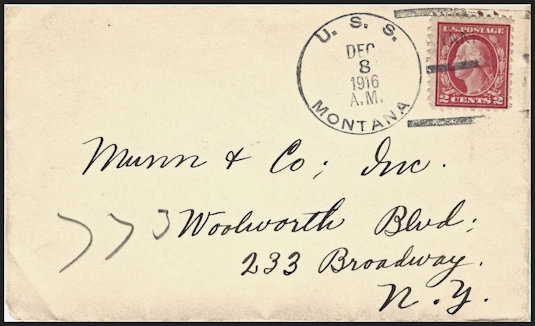 U. S. S.
DEC
8
1916
A.M.
MONTANA
U.S. POSTAGE
2 CENTS 2
Munn & Co; Inc.
Woolworth Blvd;
233 Broadway.
N.Y.